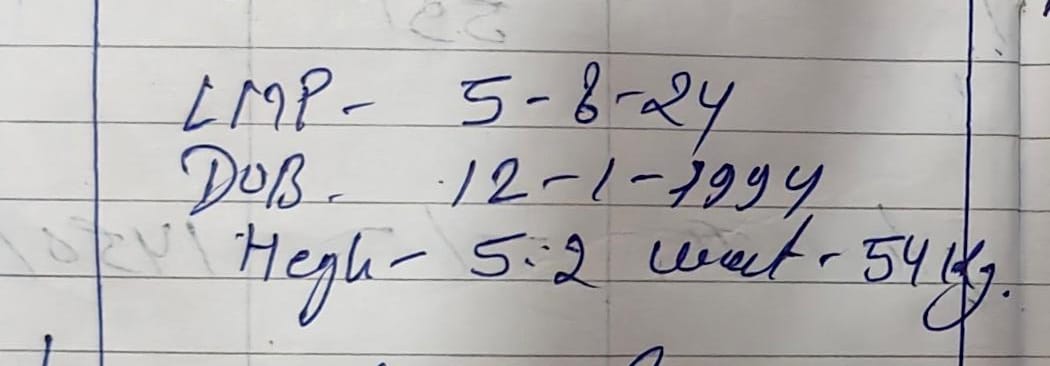 LMP- 5-8-24
DOB. 12-1-1994
Hegh- 5:2 weat - 54 Kg.